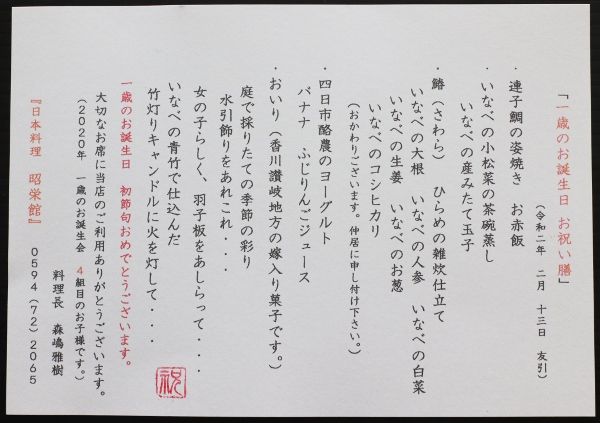 「一歳のお誕生日 お祝い膳」
(令和二年 二月 十三日 友引)
・連子鯛の姿焼き お赤飯
・いなべの小松菜の茶碗蒸し
いなべの産みたて玉子
・鰆(さわら) ひらめの雑炊仕立て
いなべの大根 いなべの人参 いなべの白菜
いなべの生姜 いなべのお葱
いなべのコシヒカリ
(おかわりございます。仲居に申し付け下さい。)
・四日市酪農のヨーグルト
バナナ ふじりんごジュース
・おいり(香川讃岐地方の嫁入り菓子です。)
庭で採りたての季節の彩り
水引飾りをあれこれ・・・
女の子らしく、羽子板をあしらって・・・
いなべの青竹で仕込んだ
竹灯りキャンドルに火を灯して・・・
一歳のお誕生日 初節句おめでとうございます。
大切なお席に当店のご利用ありがとうございます。
(2020年 一歳のお誕生会 4組目のお子様です。)
料理長 森嶋雅樹
『日本料理 昭栄館』 0594(72)2065
祝